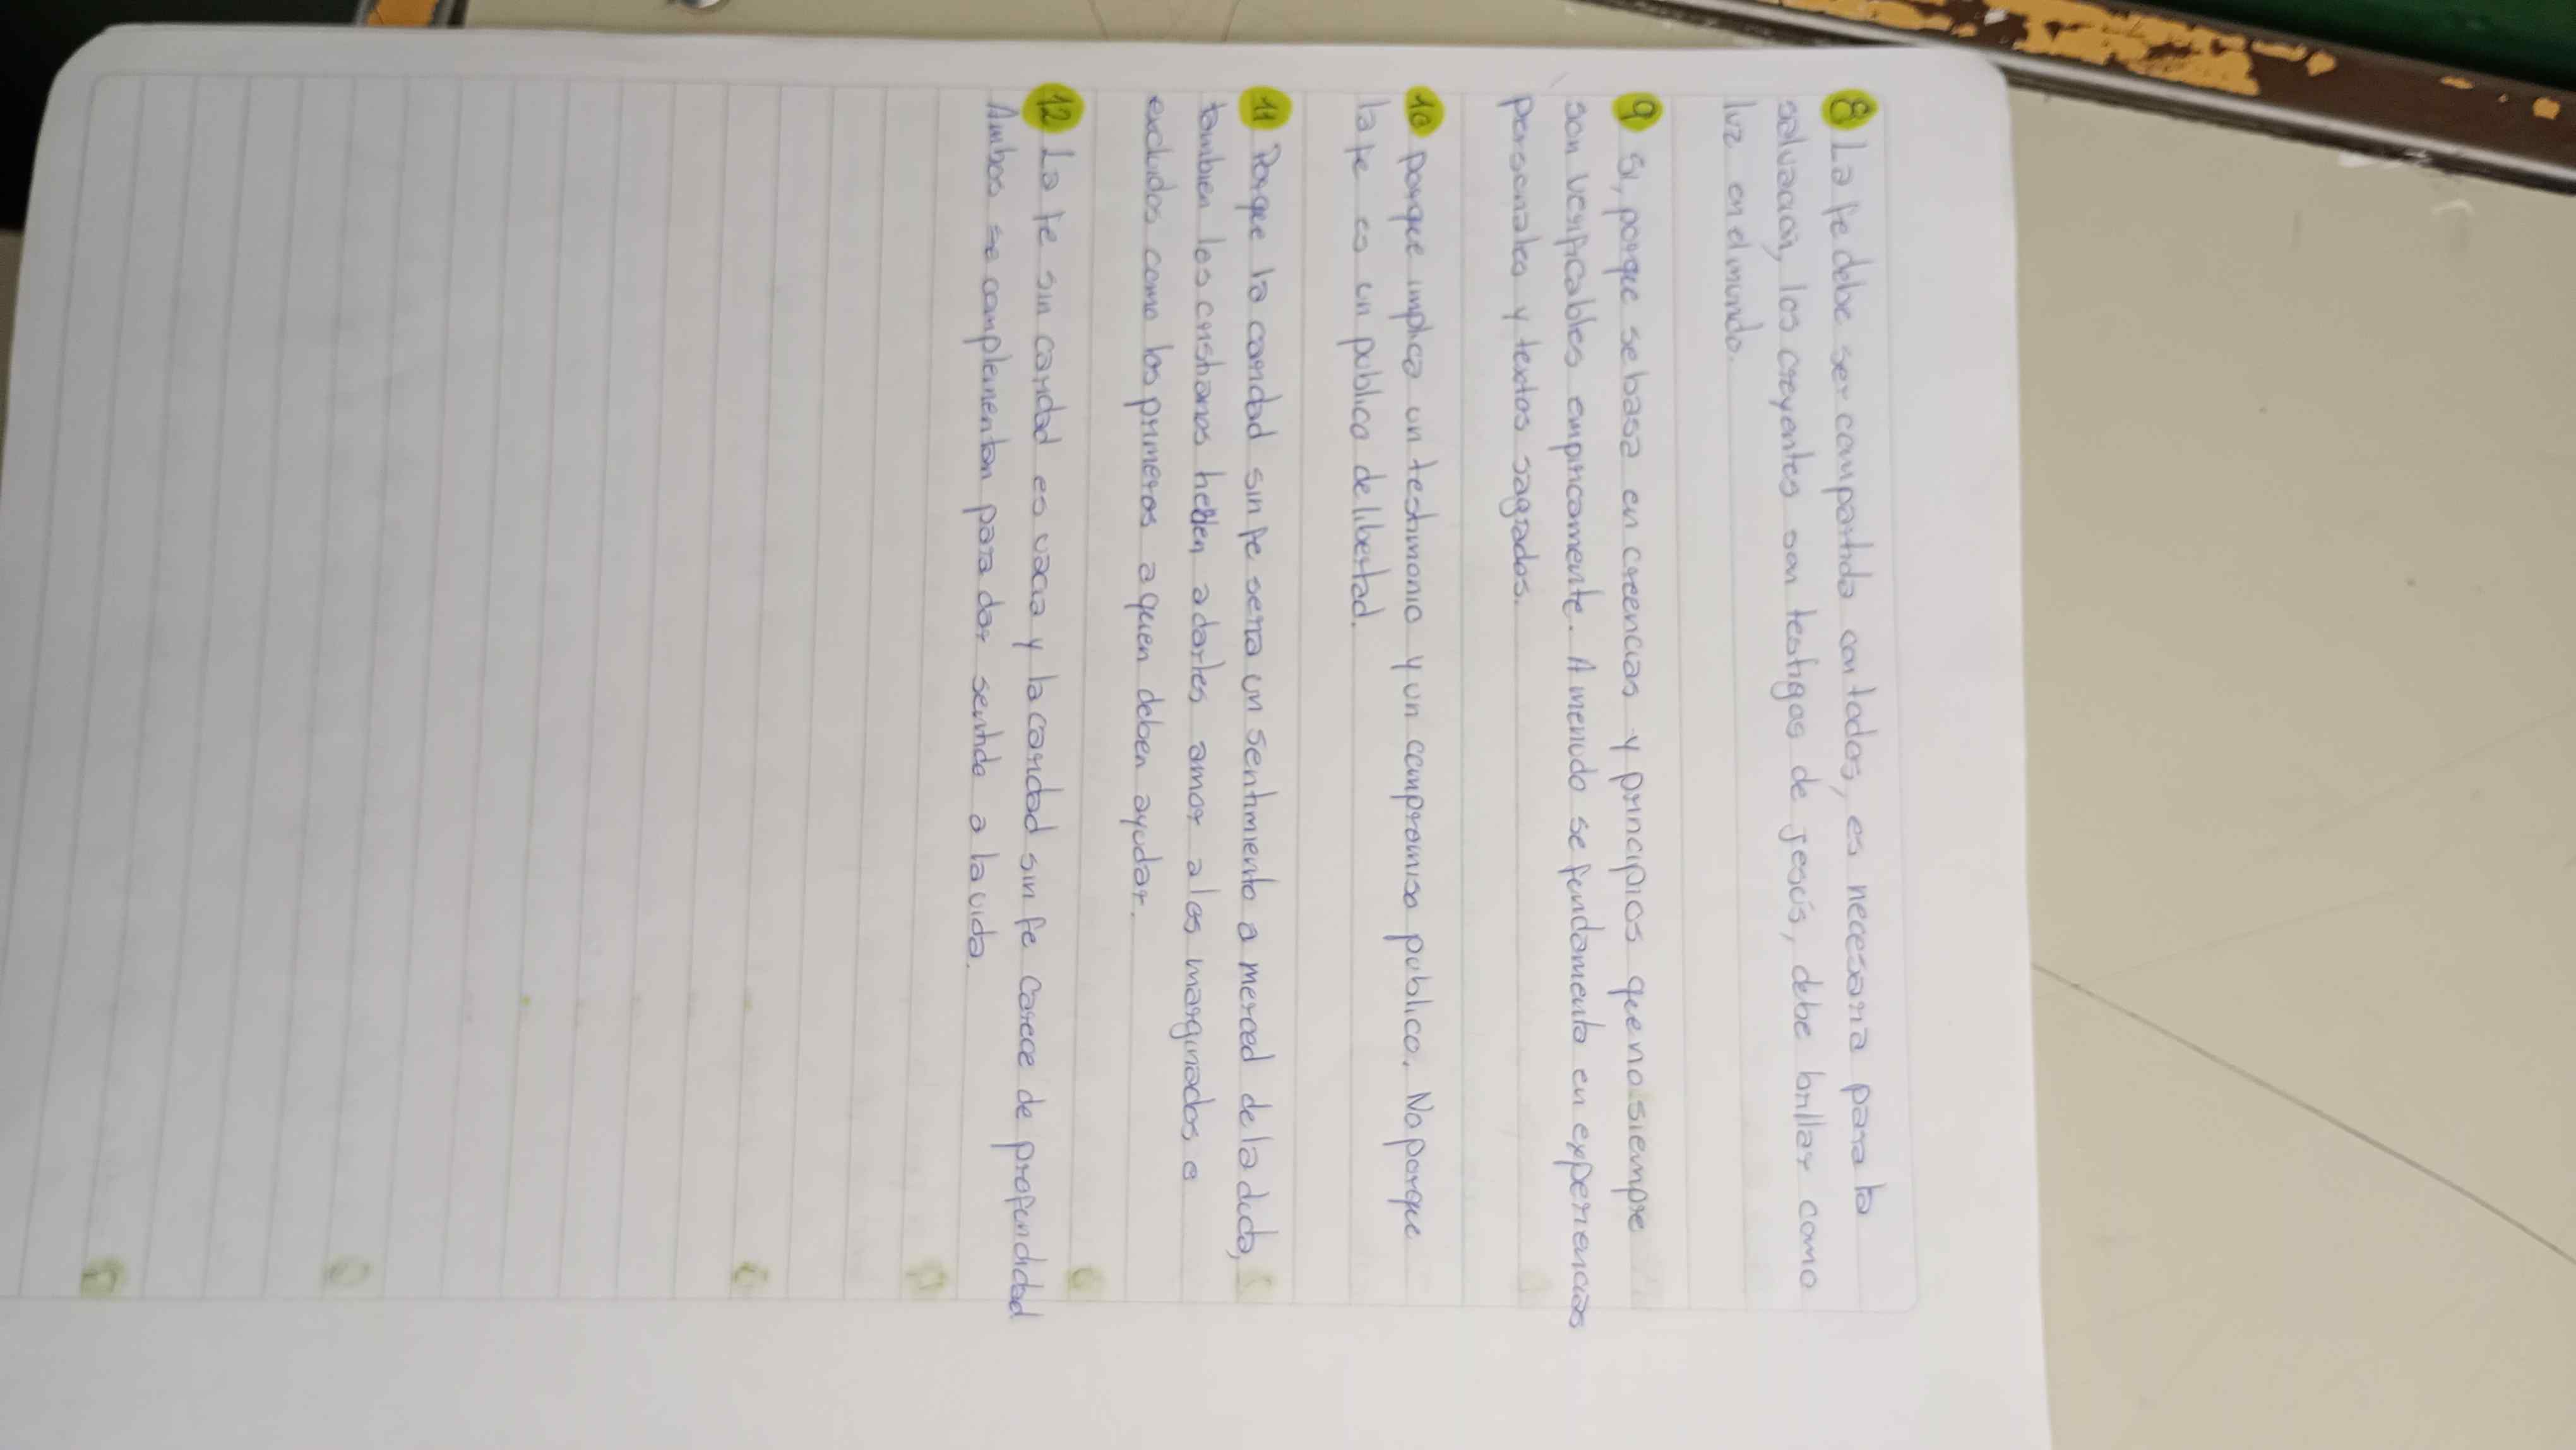 8 La fe debe ser compartida con todos, es necesaria para la
salvación, los creyentes son testigos de Jesús, debe brillar como
luz en el mundo.
9 Si, porque se basa en creencias y principios que no siempre
son verificables empiricamente. A menudo se fundamenta en experiencias
personales y textos sagrados.
10 porque implica un testimonio y un compromiso publico. No porque
la fe es un publico de libertad.
11 Porque la caridad sin fe seria un sentimiento a merced de la duda,
tambien los cristianos a darles amor a los marginados e
excluidos como los primeros a quien deben ayudar.
12 La fe sin caridad es vacia y la caridad sin fe carece de profundidad
Ambos se complementan para dar sentido a la vida.